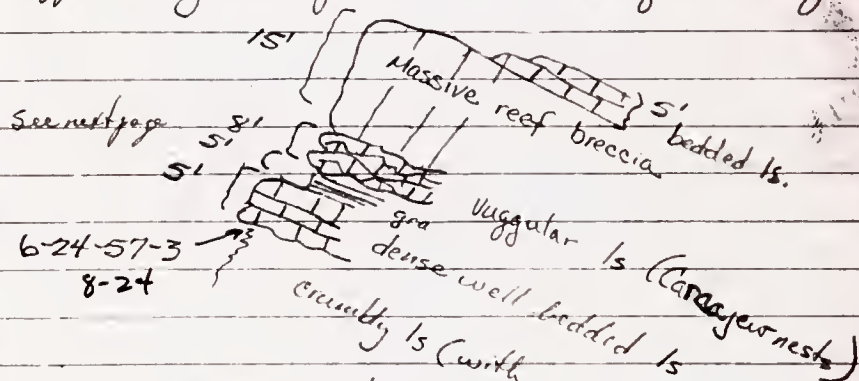 15'
Massive reef breccia
5'
bedded ls.
See next page
8'
5'
5'
Vuggular ls (
nests)
gra
dense well bedded ls
6-24-57-3
8-24
crumbly ls (with